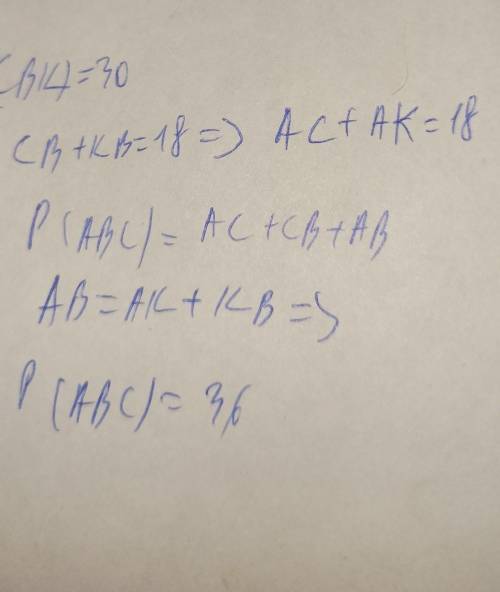 (BK)=30
CB+KB=18=> AC+AK=18
P(ABC)= AC+CB+AB
AB=AK+KB=>
P(ABC)= 36